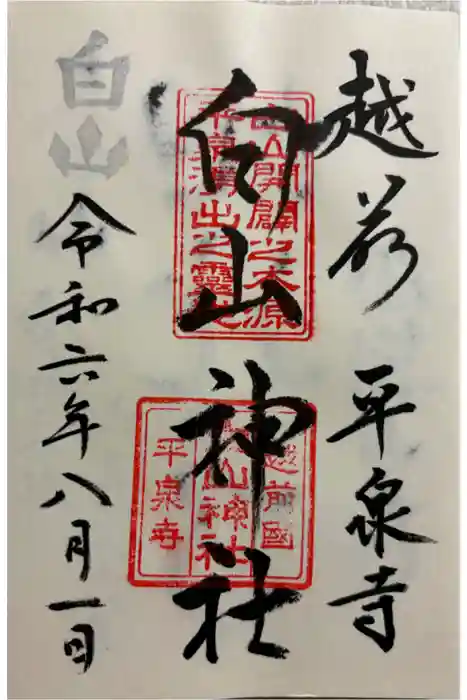 越前 平泉寺
白山神社
白山開闢之本源
平泉湧出之霊地
越前國
白山神社
平泉寺
白山
令和六年八月一日